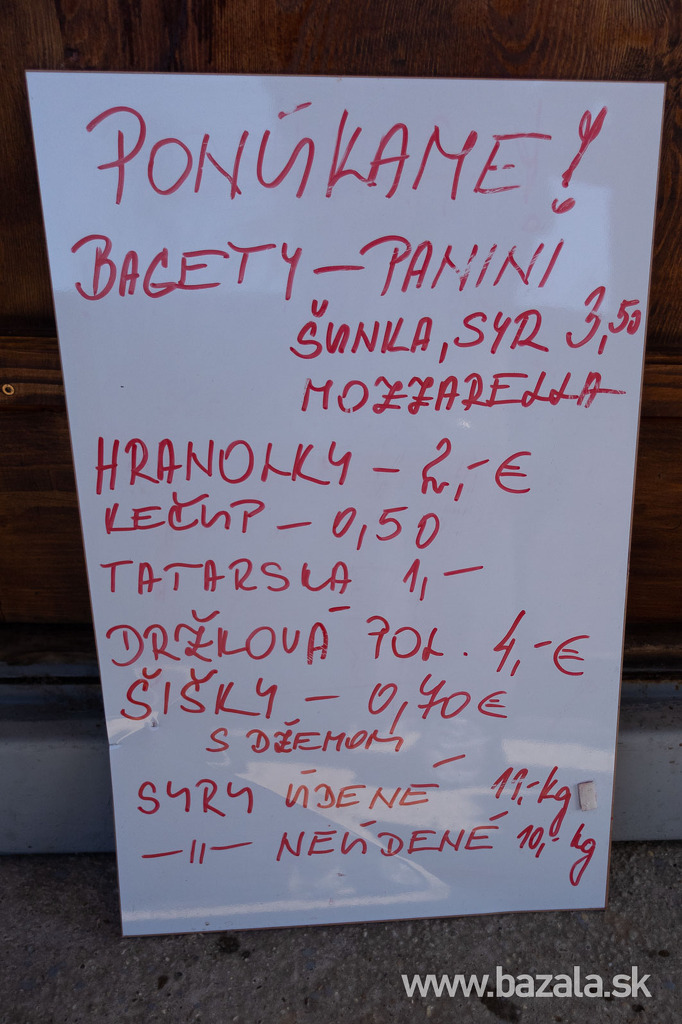 PONÚKAME!
BAGETY – PANINI
ŠUNKA, SYR 3,50
MOZZARELLA
HRANOLKY – 2,- €
KEČUP – 0,50
TATARSKA 1,-
DRŽKOVÁ POL. 4,- €
ŠIŠKY – 0,70 €
S DŽEMOM
SYRY ÚDENÉ 11,- kg
—11— NEÚDENÉ 10,- kg
www.bazala.sk